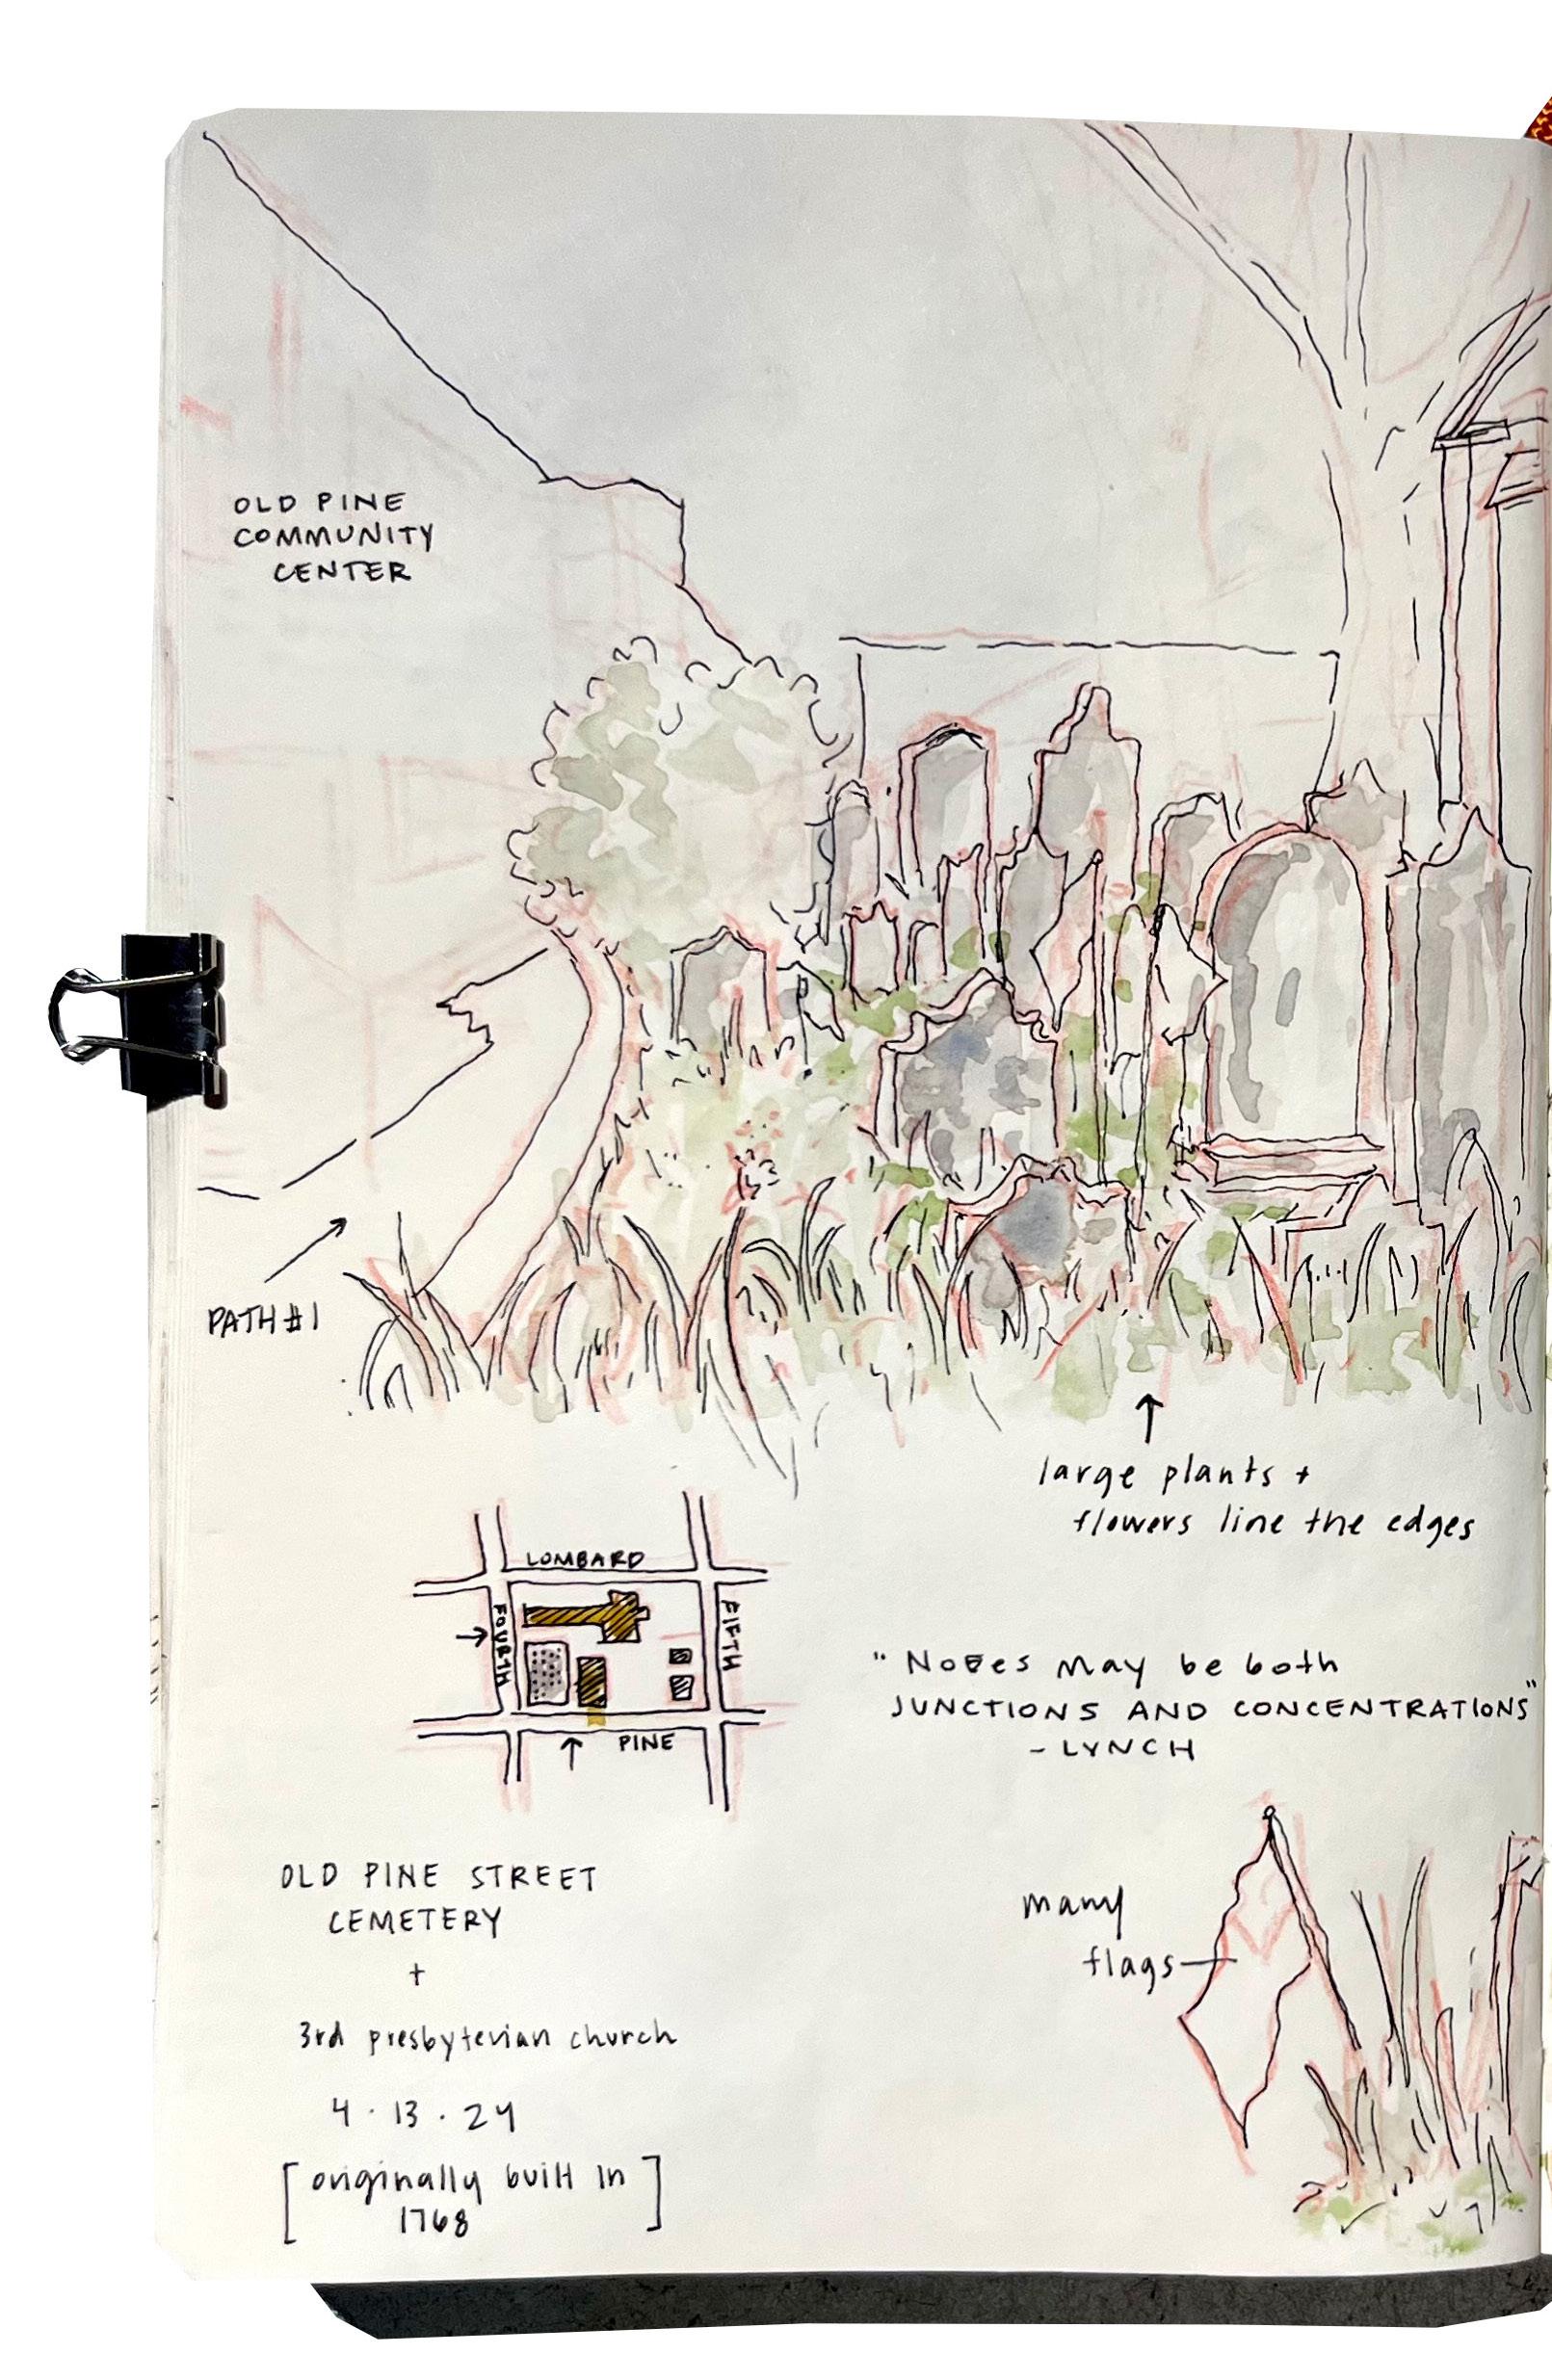 OLD PINE
COMMUNITY
CENTER
PATH #1
large plants +
flowers line the edges
LOMBARD
FOURTH
FIFTH
PINE
"NODES MAY be both
JUNCTIONS AND CONCENTRATIONS"
- LYNCH
OLD PINE STREET
CEMETERY
+
3rd presbyterian church
4 · 13 · 24
[originally built in
1768]
many
flags